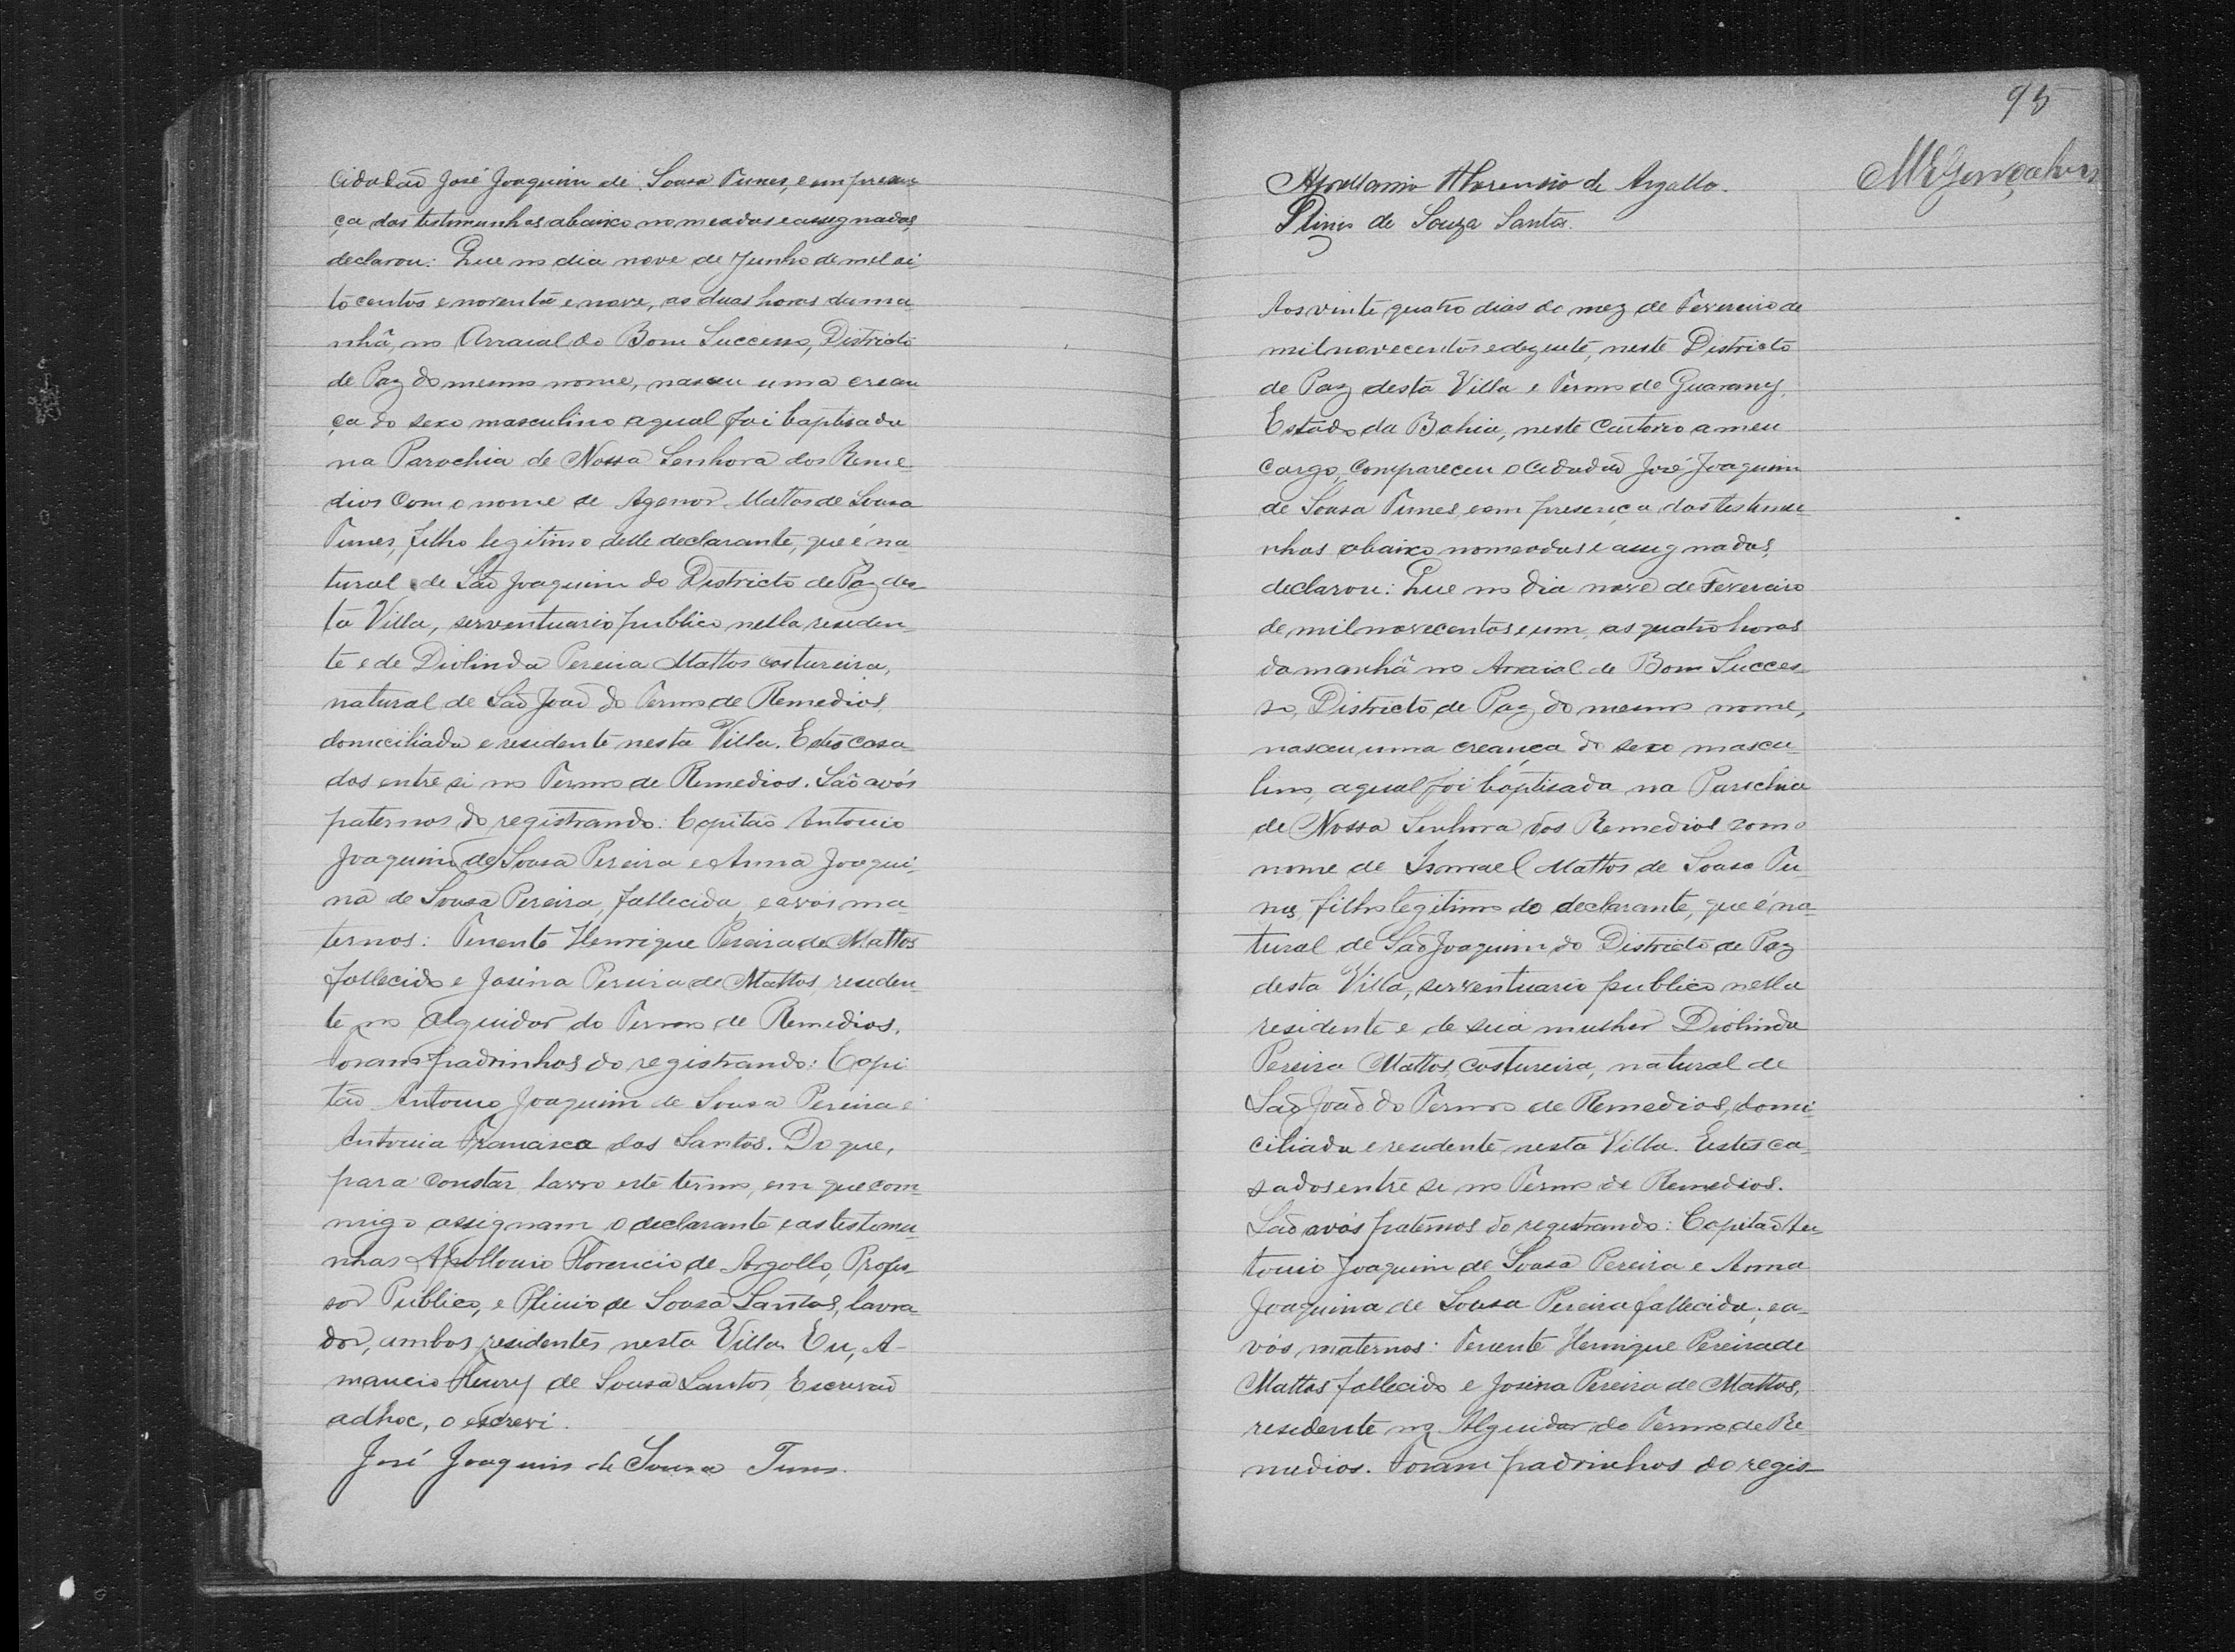 cidadão José Joaquim de Sousa Tunes, e em presen-
ça das testemunhas abaixo nomeadas e assignadas,
declarou: Que no dia nove de Junho de mil oi-
to centos e noventa e nove, as duas horas da ma-
nhã, no Arraial do Bom Successo, Districto
de Paz do mesmo nome, nasceu uma crean
ça do sexo masculino a qual foi baptisada
na Parochia de Nossa Senhora dos Reme-
dios com o nome de Agenor Mattos de Sousa
Tunes, filho legitimo delle declarante, que é na
tural de São Joaquim do Districto de Paz des-
ta Villa, serventuario publico nella residen-
te e de Diolinda Pereira Mattos costureira,
natural de São João do Termo de Remedios,
domiciliada e residente nesta Villa. Estes casa-
dos entre si no Termo de Remedios. São avós
paternos do registrando: Capitão Antonio
Joaquim de Sousa Pereira e Anna Joaqui-
na de Sousa Pereira, fallecida, e avós ma-
ternos: Tenente Henrique Pereira de Mattos
fallecido e Josina Pereira de Mattos, residen-
te no Alguidar do Termo de Remedios.
Foram padrinhos do registrando: Capi-
tão Antonio Joaquim de Sousa Pereira e
Antonia Francisca dos Santos. Do que,
para constar, lavro este termo, em que com-
migo assignam o declarante e as testemu-
nhas Apollonio Florencio de Argollo, Profes-
sor Publico, e Plinio de Sousa Santos, lavra-
dor, ambos residentes nesta Villa. Eu, A-
mancio Fleury de Sousa Santos, Escrivão
adhoc, o escrevi.
José Joaquim de Sousa Tunes.
95
MRGonçalves
Apollonio Florencio de Argollo.
Plinio de Souza Santos.
Aos vinte quatro dias do mez de Fevereiro de
mil novecentos e dezesete, neste Districto
de Paz desta Villa e Termo de Guarany,
Estado da Bahia, neste Cartorio a meu
cargo, compareceu o cidadão José Joaquim
de Sousa Tunes, e em presença das testemu-
nhas abaixo nomeadas e assignadas,
declarou: Que no dia nove de Fevereiro
de mil novecentos e um, as quatro horas
da manhã no Arraial de Bom Succes-
so, Districto de Paz do mesmo nome,
nasceu uma creança do sexo mascu-
lino, a qual foi baptisada na Parochia
de Nossa Senhora dos Remedios com o
nome de Ismael Mattos de Sousa Tu-
nes, filho legitimo do declarante, que é na-
tural de São Joaquim do Districto de Paz
desta Villa, serventuario publico nella
residente e de sua mulher Diolinda
Pereira Mattos, costureira, natural de
São João do Termo de Remedios, domi-
ciliada e residente nesta Villa. Estes ca-
sados entre si no Termo de Remedios.
São avós paternos do registrando: Capitão An-
tonio Joaquim de Sousa Pereira e Anna
Joaquina de Sousa Pereira fallecida; e a-
vós maternos: Tenente Henrique Pereira de
Mattos fallecido e Josina Pereira de Mattos,
residente no Alguidar do Termo de Re-
medios. Foram padrinhos do regis-